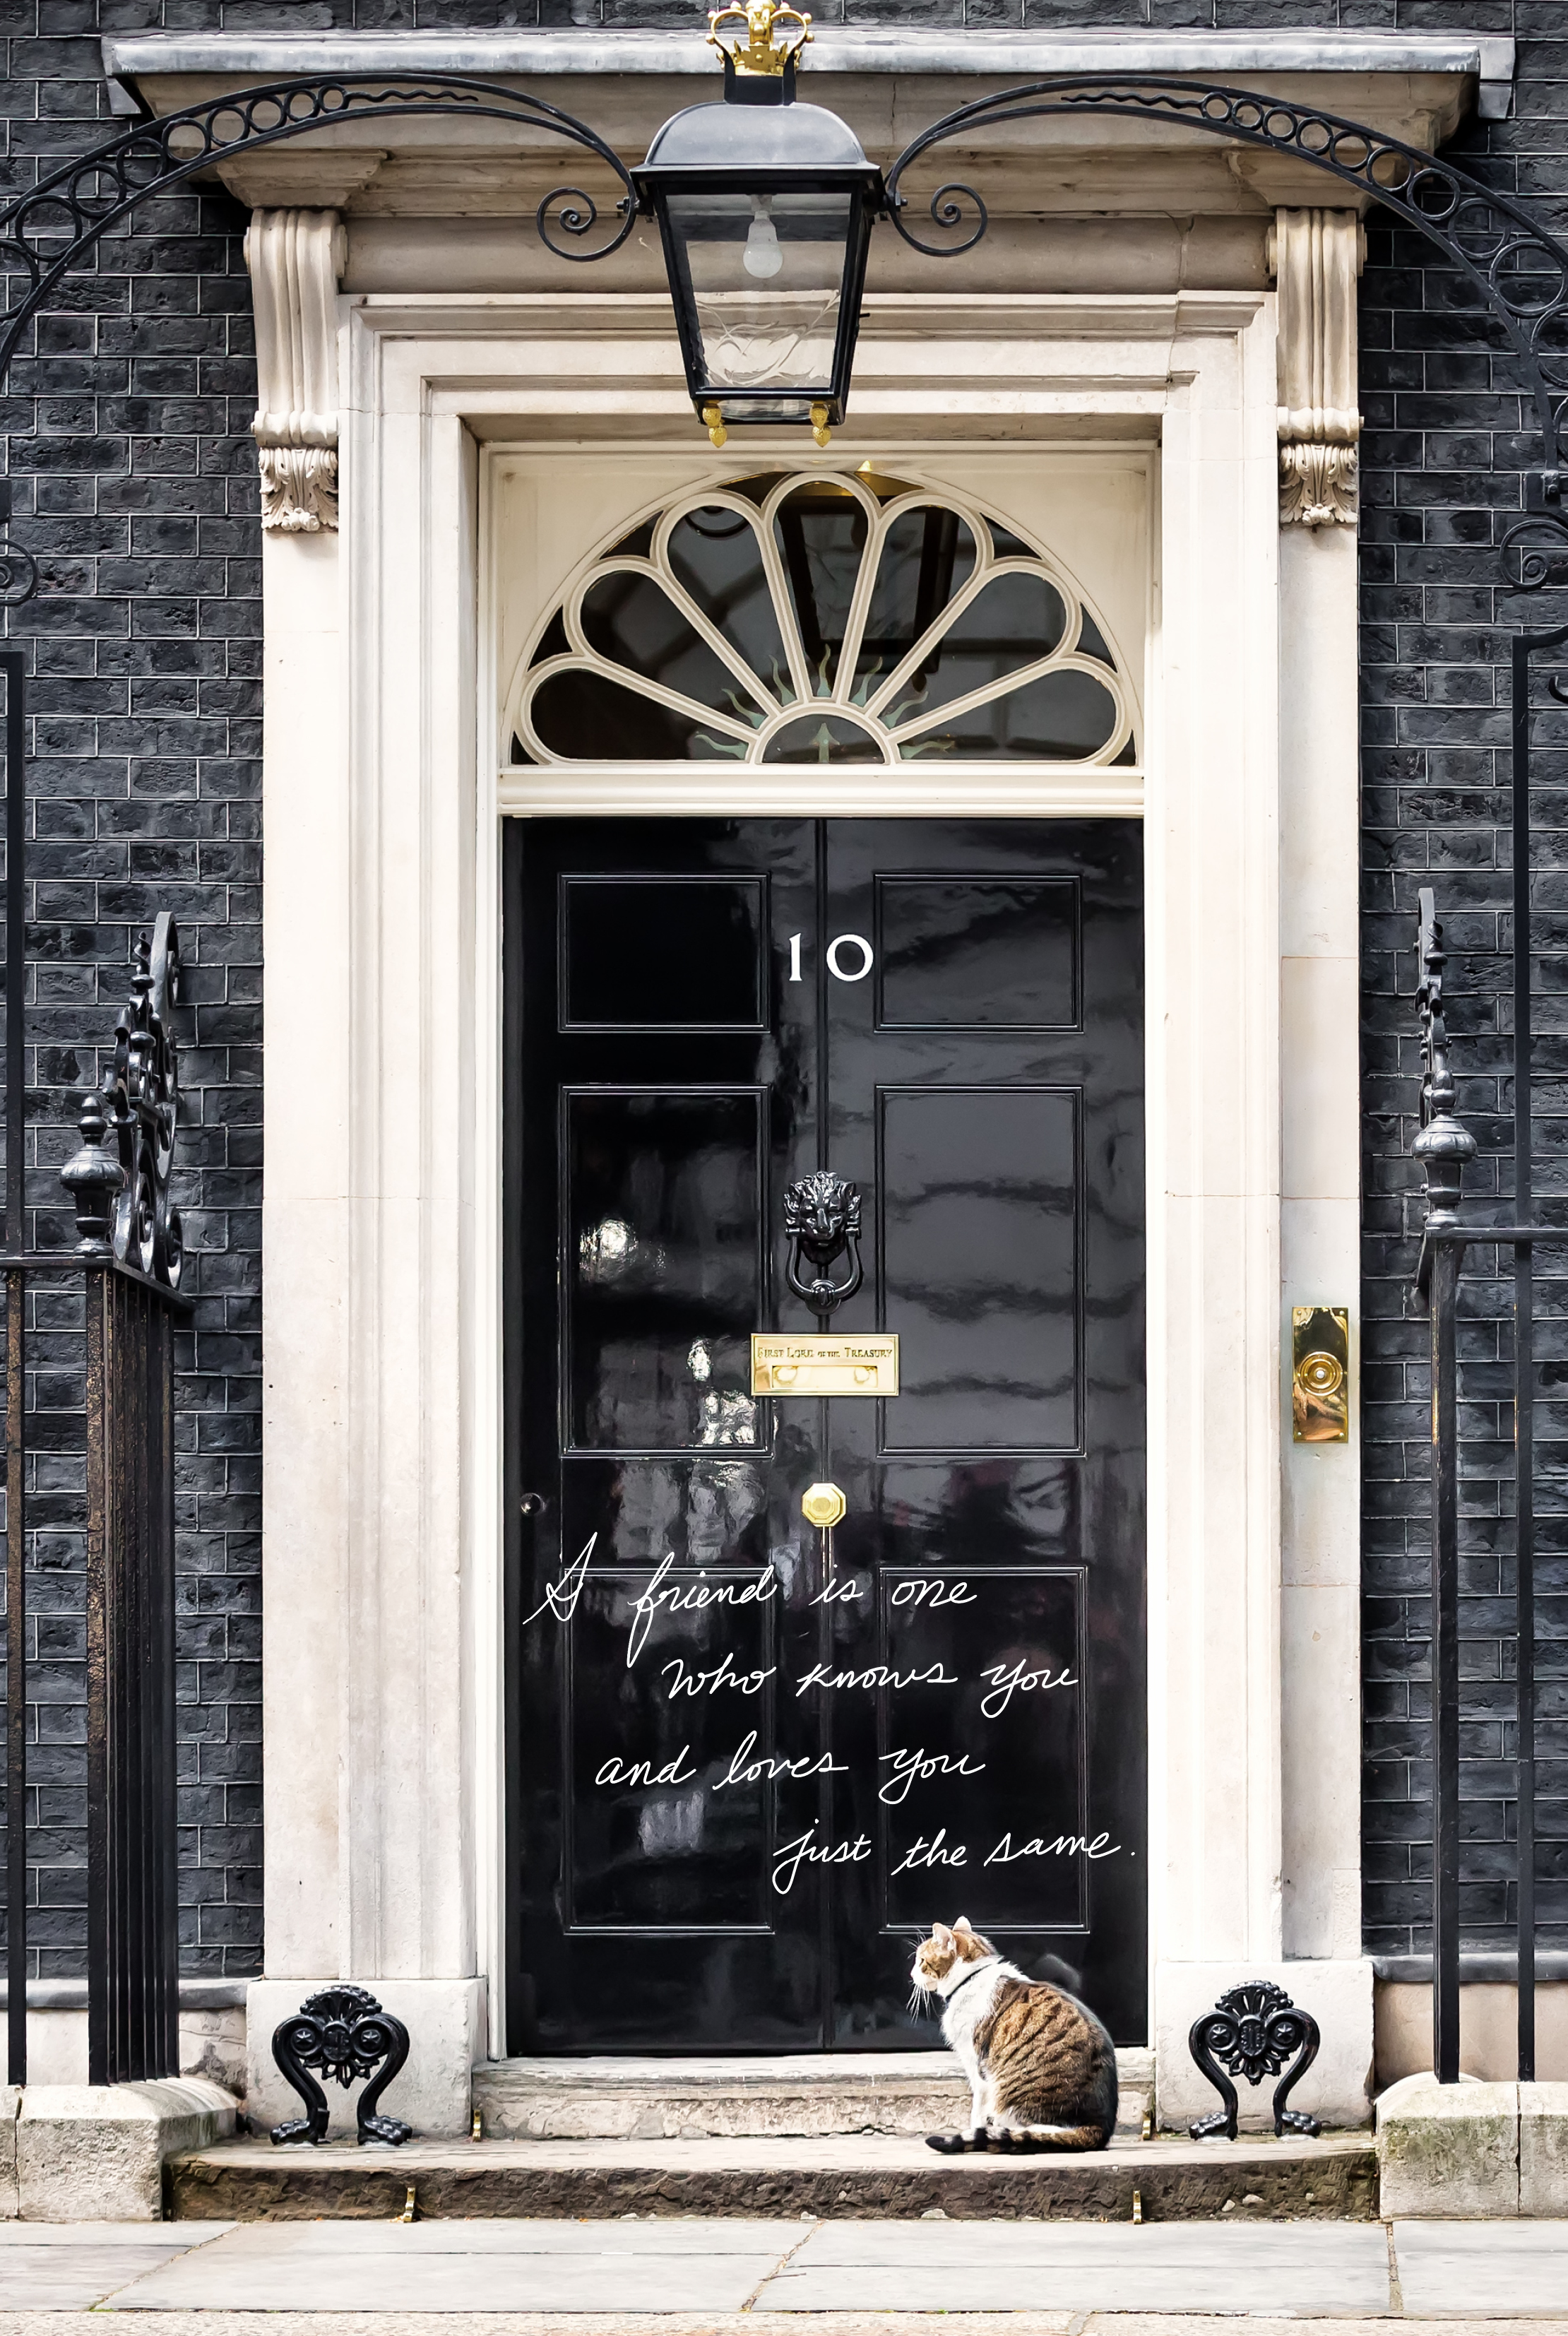 10
FIRST LORD OF THE TREASURY
A friend is one
who knows you
and loves you
just the same.